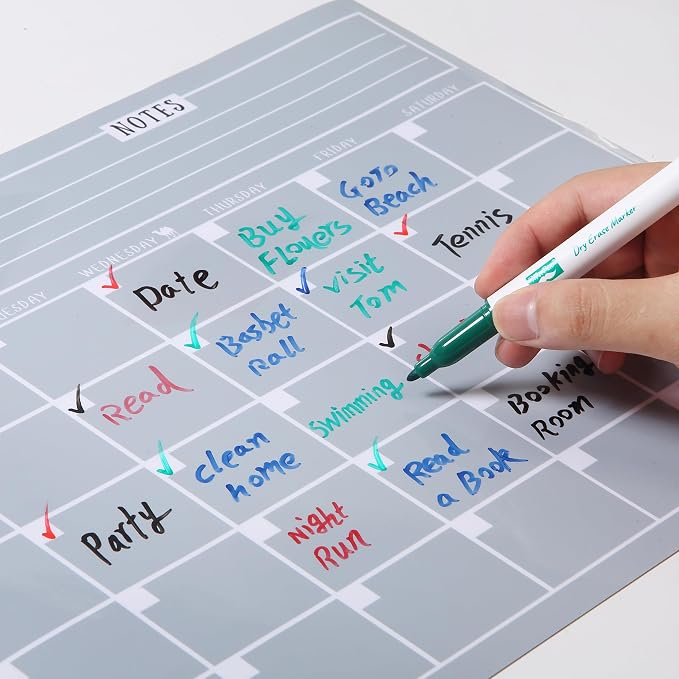 NOTES
WEDNESDAY
THURSDAY
FRIDAY
SATURDAY
Date
Buy
Flowers
Goto
Beach
Read
Basbet
Ball
visit
Tom
Tennis
Party
clean
home
Swimming
Night
Run
Read
a Book
Booking
Room
Dry Erase Marker